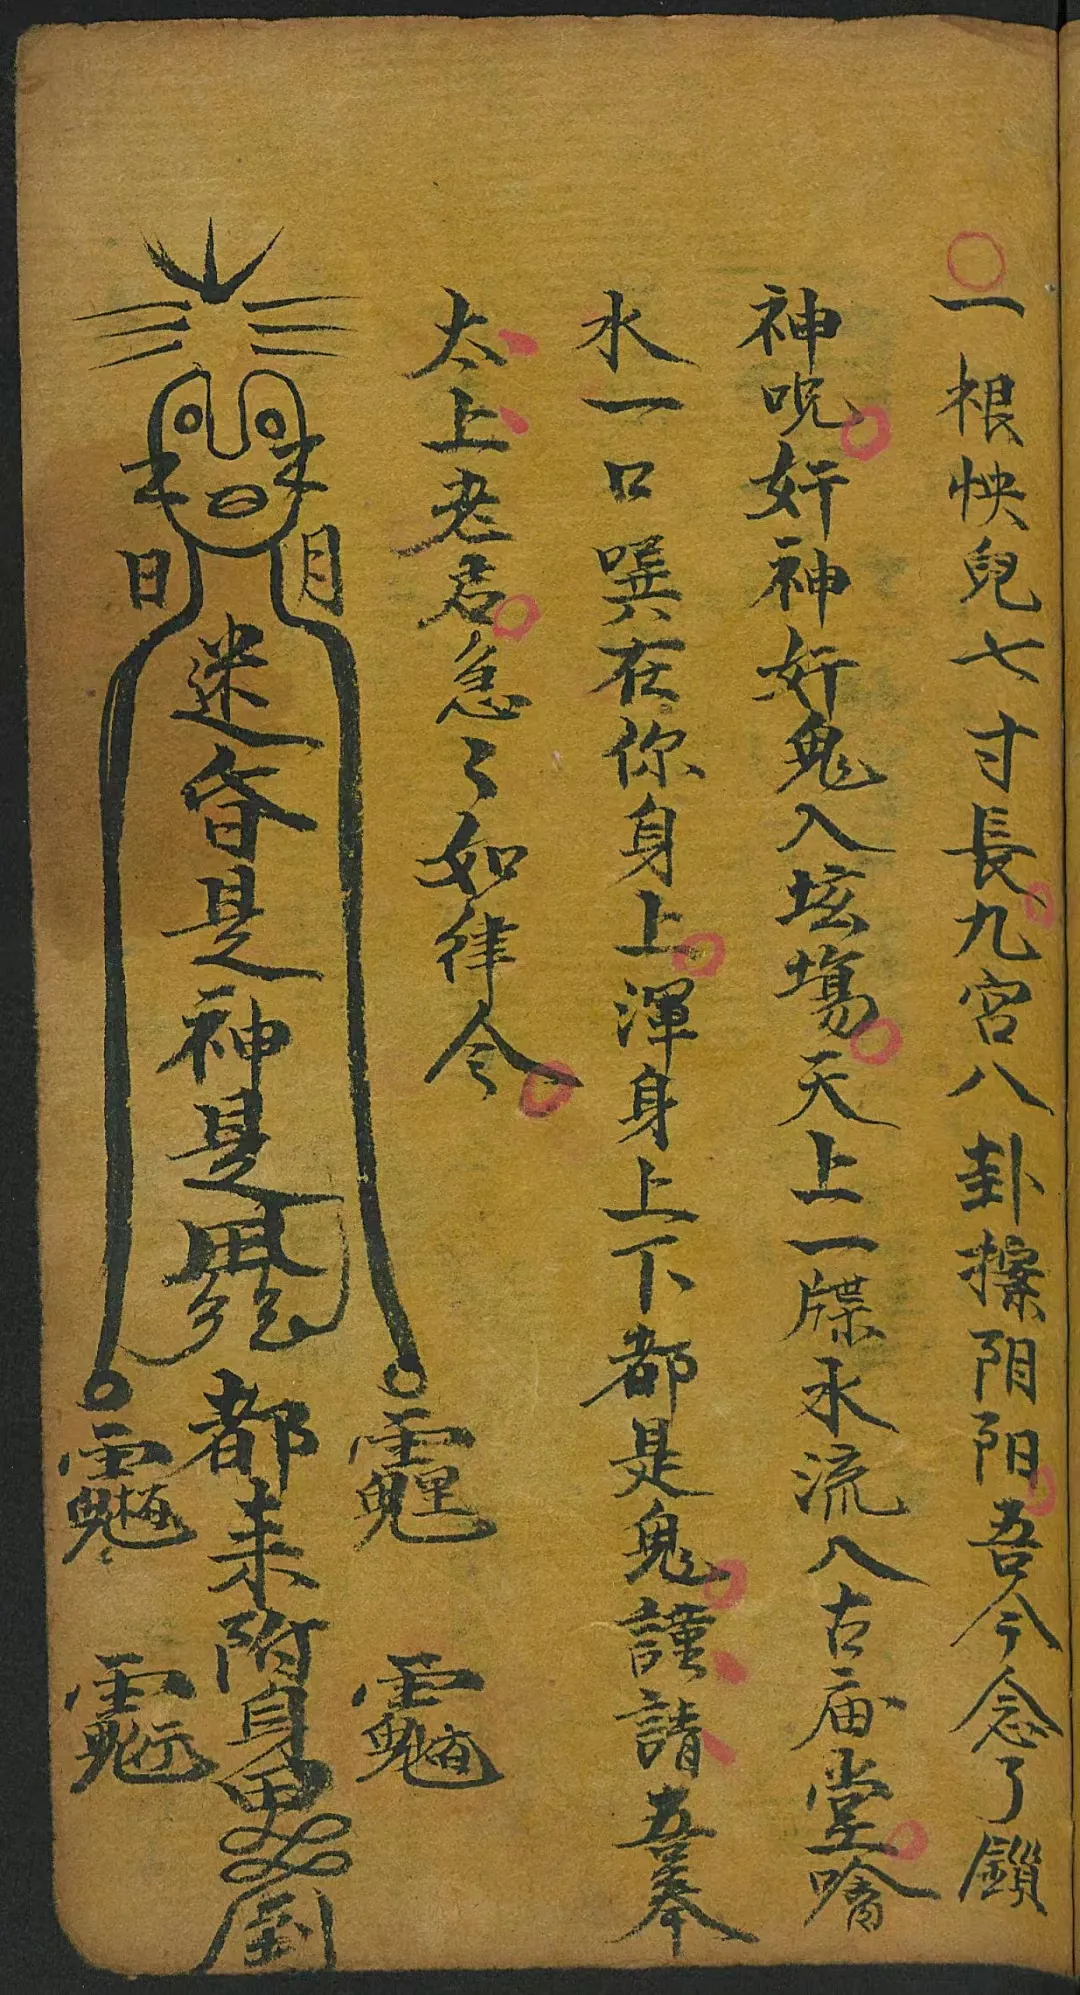 一根怏兒七寸長九宮八卦擦阴阳吾今念了鎖
神呪奸神奸鬼入坛塲天上一牒水流入古庙堂噙
水一口噀在你身上渾身上下都是鬼謹請吾奉
太上老君急〻如律令
日 月
迷昏是神是鬼都来附身